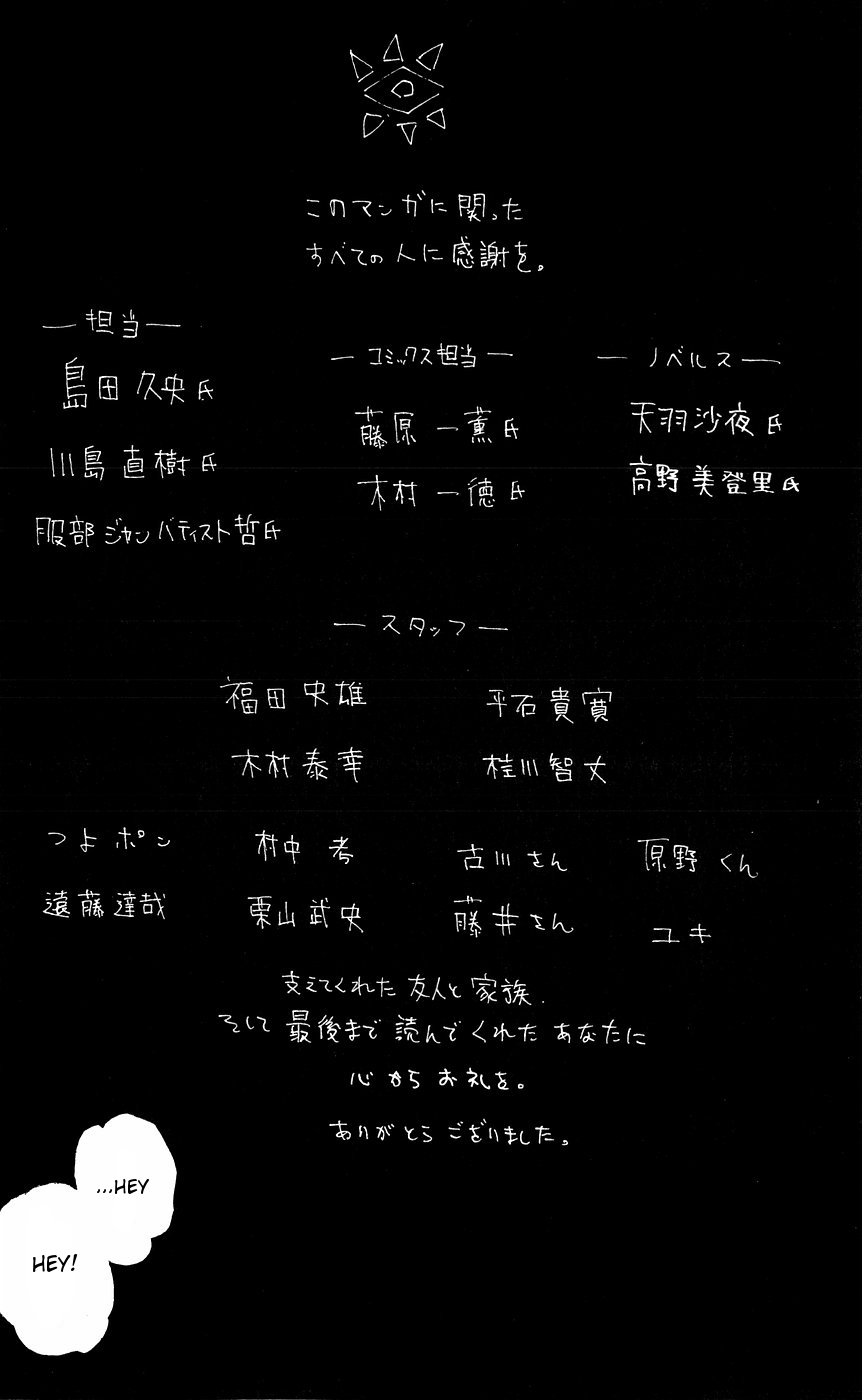 このマンガに関った
すべての人に感謝を。
―担当―
島田久央氏
川島直樹氏
服部ジャンバティスト哲氏
―コミックス担当―
藤原一薫氏
木村一徳氏
―ノベルス―
天羽沙夜氏
高野美登里氏
―スタッフ―
福田史雄 平石貴寛
木村泰幸 桂川智丈
つよポン 村中孝 古川さん 原野くん
遠藤達哉 栗山武史 藤井さん ユキ
支えてくれた友人と家族、
そして最後まで読んでくれたあなたに
心からお礼を。
ありがとうございました。
...HEY
HEY!